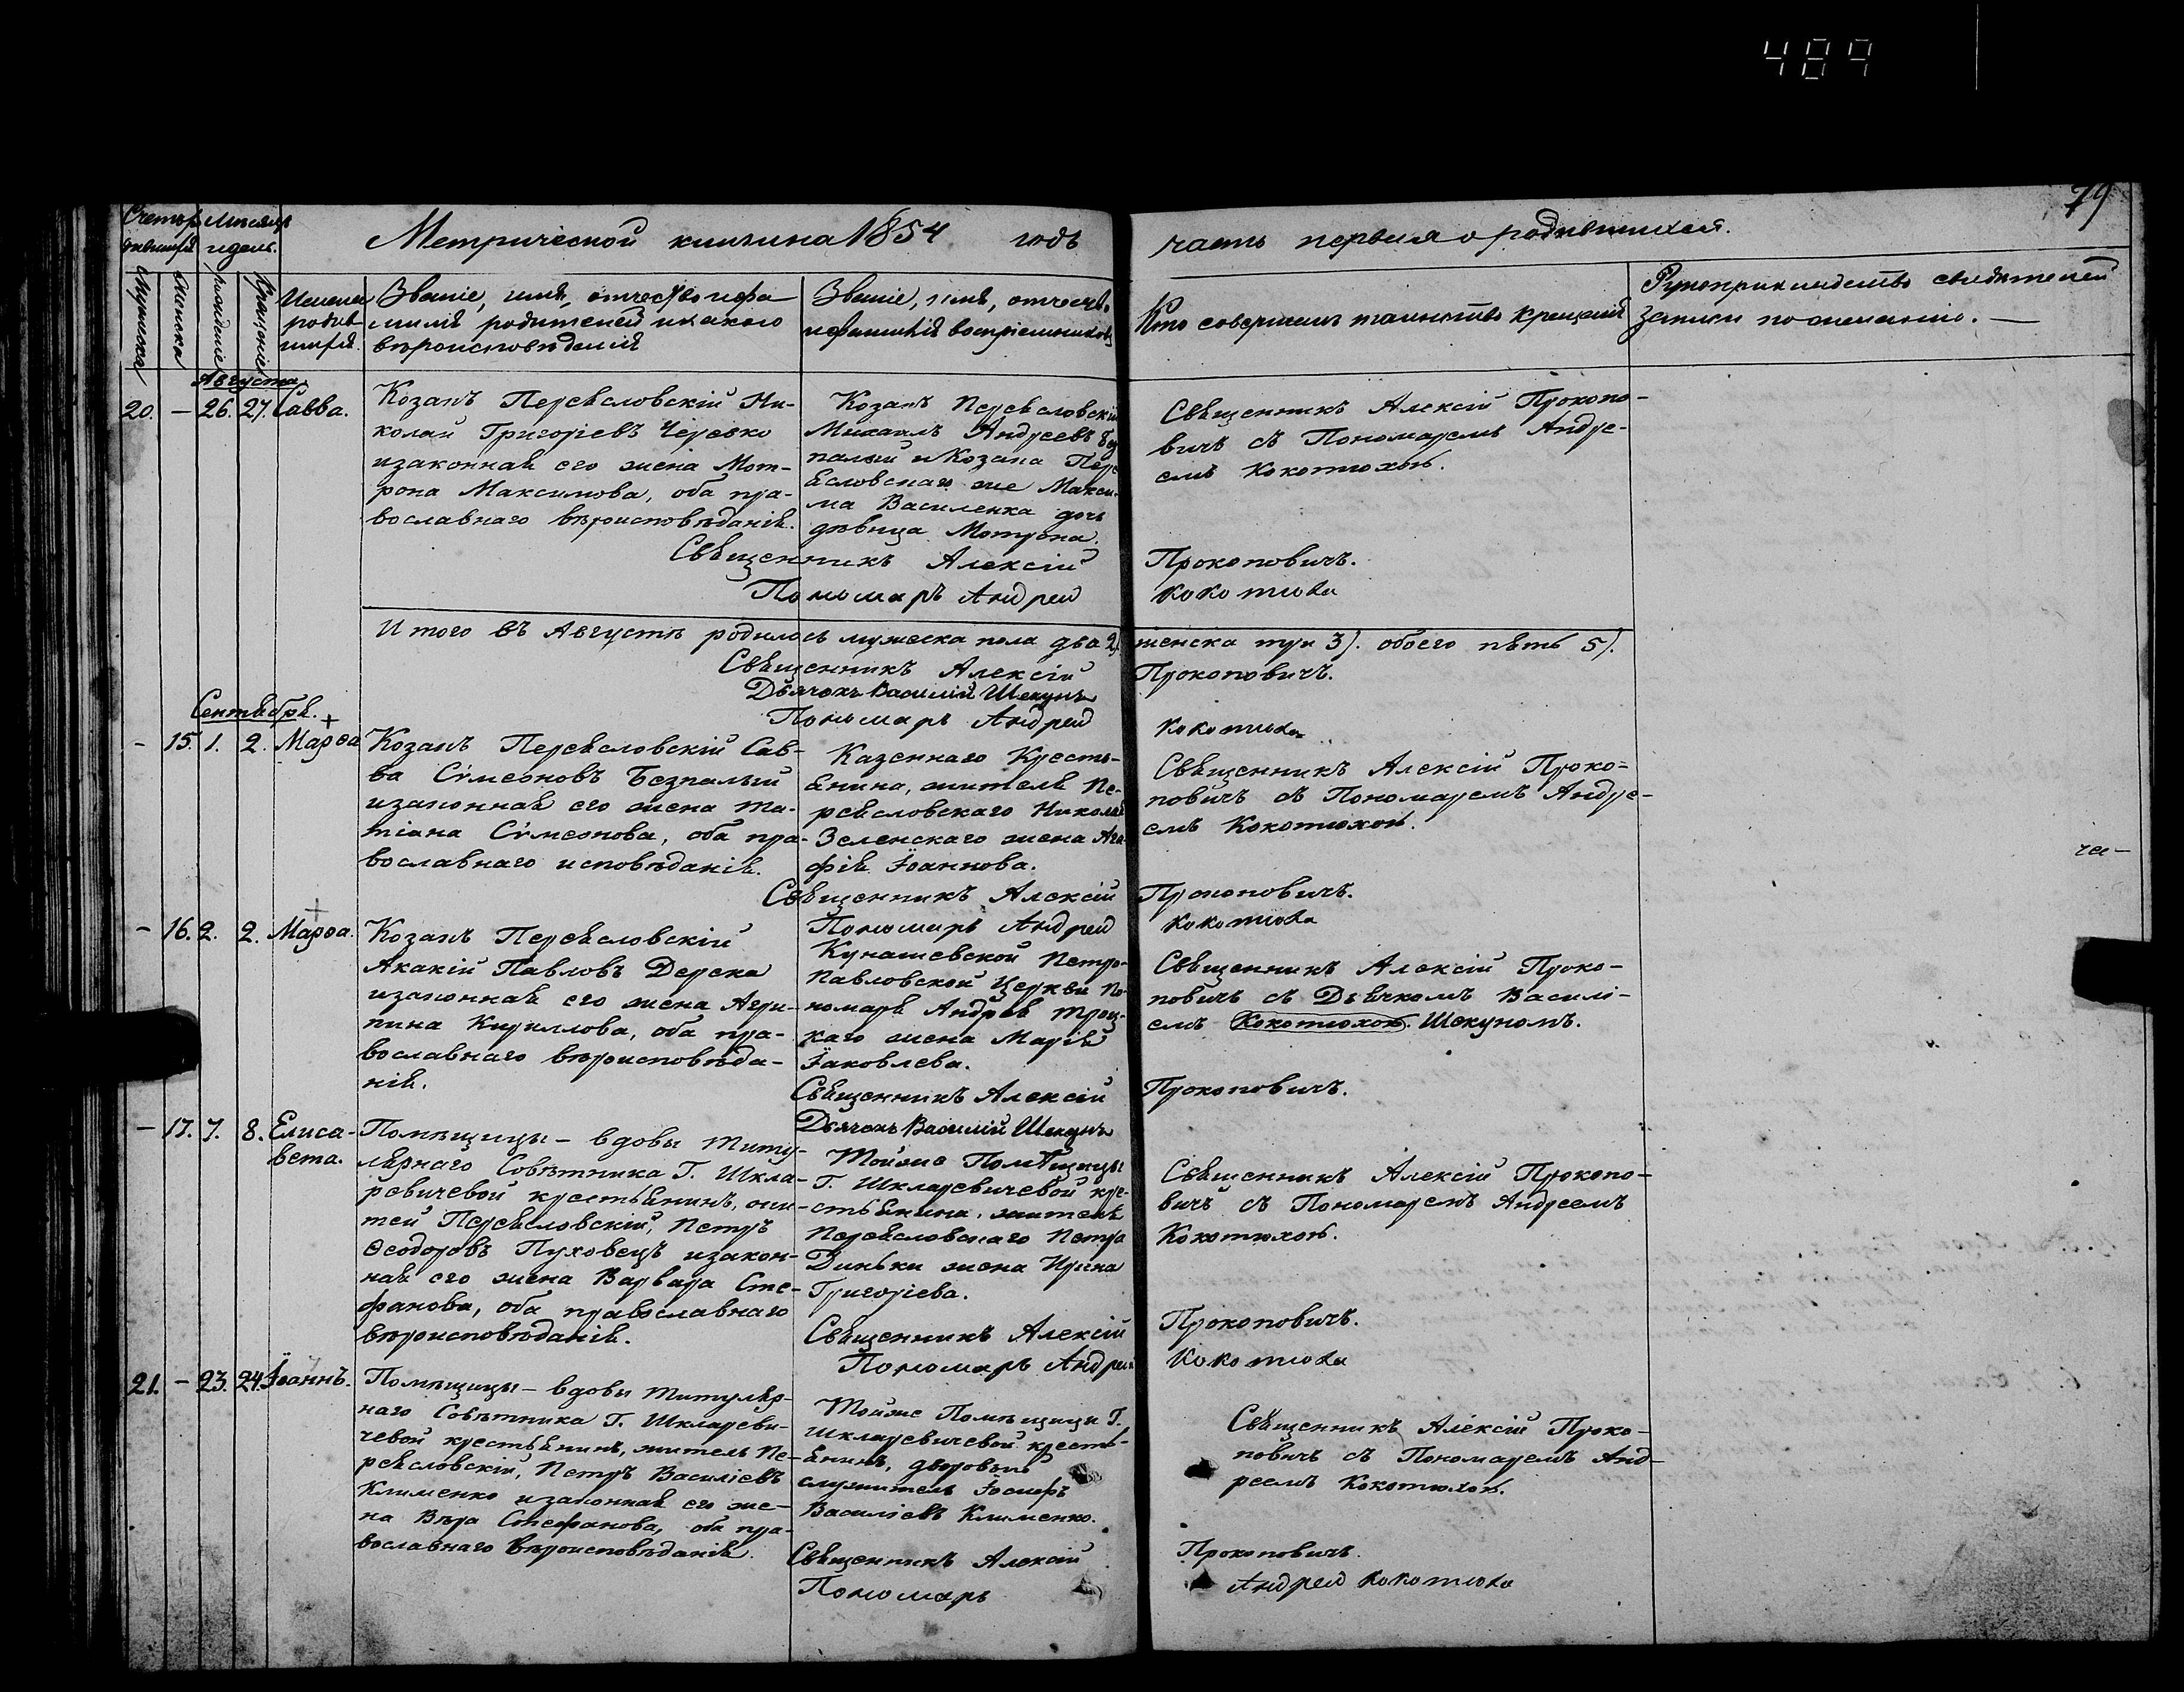 489
79
Счетъ ро-
дившихся
Мѣсяцъ
и день.
Метрической книги на 1854 годъ
часть первая о родившихся.
Мужеска
Женска
рожденіе
Крещеніе
Имена
родив-
шихся.
Званіе, имя, отчество и фа-
милія родителей и какого
вѣроисповѣданія
Званіе, имя, отчество
и фамилія воспріемниковъ
Кто совершалъ таинство крещенія
Рукоприкладство свидѣтелей
записи по желанію. —
Августа
20. — 26. 27. Савва.
Козакъ Переясловскій Ни-
колай Григоріевъ Черевко
и законная его жена Мот-
рона Максимова, оба пра-
вославнаго вѣроисповѣданія.
Козакъ Переясловскій
Михаилъ Андреевъ Без
палый и Козака Пере
ясловскаго же Макси-
ма Василенка дочь
дѣвица Мотрона.
Священникъ Алексій Прокопо-
вичъ съ Пономаремъ Андре-
емъ Кокотюхою.
Священникъ Алексій Прокоповичъ.
Пономарь Андрей Кокотюха
Итого въ Августѣ родилось мужеска пола два 2). женска три 3). обоего пять 5).
Священникъ Алексій Прокоповичъ.
Дьячокъ Василій Шекунъ
Пономарь Андрей Кокотюха
Сентября.
— 15. 1. 2. Марѳа
Козакъ Переясловскій Сав-
ва Сѵмеоновъ Безпалый
и законная его жена Та-
тіана Сѵмеонова, оба пра-
вославнаго исповѣданія.
Казеннаго Кресть-
янина, жителя Пе-
реясловскаго Николая
Зеленскаго жена Ага
фія Іоаннова.
Священникъ Алексій Проко=
повичъ съ Пономаремъ Андре-
емъ Кокотюхою.
Священникъ Алексій Прокоповичъ.
Пономарь Андрей Кокотюха
— 16. 2. 2. Марѳа.
Козакъ Переясловскій
Акакій Павловъ Дерека
и законная его жена Агри-
пина Кириллова, оба пра-
вославнаго вѣроисповѣда-
нія.
Кунашевской Петро-
Павловской Церкви По-
номаря Андрея Троц-
каго жена Марія
Іаковлева.
Священникъ Алексій Проко-
повичъ съ Дьячкомъ Василі-
емъ Кокотюхою. Шекуномъ.
Священникъ Алексій Прокоповичъ.
Дьячокъ Василій Шекунъ
— 17. 7. 8. Елиса-
вета.
Помѣщицы – вдовы Титу-
лярнаго Совѣтника Г. Шкля-
ревичевой крестьянинъ, жи-
тель Переясловскій, Петръ
Ѳеодоровъ Пуховецъ и закон-
ная его жена Варвара Сте-
фанова, оба православнаго
вѣроисповѣданія.
Тойже Помѣщицы
Г. Шкляревичевой кре-
стьянина, жителя
Переясловскаго Петра
Диньки жена Ирина
Григоріева.
Священникъ Алексій Прокопо-
вичъ съ Пономаремъ Андреемъ
Кокотюхою.
Священникъ Алексій Прокоповичъ.
Пономарь Андрей Кокотюха
21. — 23. 24. Іоаннъ.
Помѣщицы – вдовы Титуляр-
наго Совѣтника Г. Шкляреви-
чевой крестьянинъ, житель Пе-
реясловскій, Петръ Василіевъ
Клименко и законная его же-
на Вѣра Стефанова, оба пра-
вославнаго Вѣроисповѣданія.
Тойже Помѣщицы Г.
Шкляревичевой кресть-
янинъ, дворовый
служитель Іосифъ
Василіевъ Клименко.
Священникъ Алексій Проко-
повичъ съ Пономаремъ Анд-
реемъ Кокотюхою.
Священникъ Алексій Прокоповичъ.
Пономарь Андрей Кокотюха